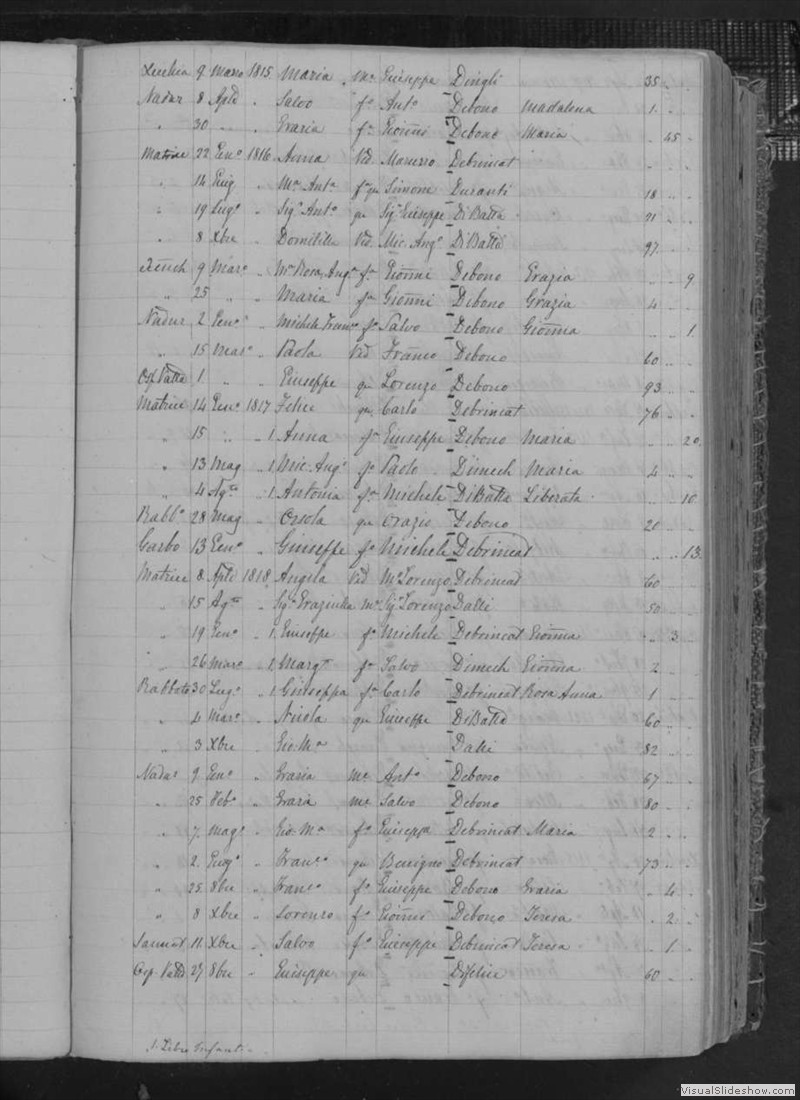 Xeuchia 9 Marzo 1815 Maria Me Giuseppe Dingli 35 "
Nadur 8 Aple " Salvo fo Anto Debono Madalena 1 "
" 30 " " Grazia fa Gionni Debono Maria " 45 "
Matrice 22 Geno 1816 Anna Vid Debrincat
" 14 " Ma Anta fa qu Simone Duranti 18 "
" 19 Lugo " Sigr Anto qu Sigr Giuseppe DiBatta 21 "
" 8 Xbre " Domitilla Vid Mic. Ango DiBatta 97 "
9 Maro " Ma Rosa Anga fa Gionni Debono Grazia " " 9
" 25 " " Maria fa Gionni Debono Grazia 4 "
Nadur 2 Geno " Michele Franco fo Salvo Debono Gionna " " 1
" 15 Maro " Paola Vid Franco Debono 60 "
Osp Vatta 1 " " Giuseppe qu Lorenzo Debono 93 "
Matrice 14 Geno 1817 Felice qu Carlo Debrincat 76 "
" 15 " " 1 Anna fa Giuseppe Debono Maria " " 20
" 13 Mag " 1 Mic. Ango fo Paolo Dimech Maria 4 "
" 4 " 1 Antonia fa Michele DiBatta Liberata " " 10
Rabbo 28 Mag " Orsola qu Orazio Debono 20 "
Garbo 13 Geno " Giuseppe fo Michele Debrincat " " 13
Matrice 8 Aple 1818 Angela Vid Mo Lorenzo Debrincat 60 "
" 15 " Siga Graziulla Me Sigr Lorenzo Dalli 50 "
" 19 Geno " 1 Giuseppe fo Michele Debrincat Gionna " 3 "
" 26 Maro " 1 Margta fa Salvo Dimech Gionna 2 "
Rabbato 30 Lugo " 1 Giuseppa fa Carlo Debrincat Rosa Anna 1 "
" 4 Maro " Nicola qu Giuseppe DiBatta 60 "
" 3 Xbre " Gio. Ma Dalli 82 "
Nadur 9 Geno " Grazia Me Anto Debono 67 "
" 25 Febo " Grazia Me Salvo Debono 80 "
" 7 Mago " Gio. Ma fo Giuseppe Debrincat Maria 2 "
" 2 " Franco qu Benigno Debrincat 73 "
" 25 8bre " Franco fo Giuseppe Debono Grazia " 4 "
" 8 Xbre " Lorenzo fo Gionni Debono Teresa " 2 "
Sannat 11 Xbre " Salvo fo Giuseppe Debrincat Teresa " 1 "
Osp. Vatta 27 8bre " Giuseppe qu Difelice 60 "
1. Libro Infanti
VisualSlideshow.com